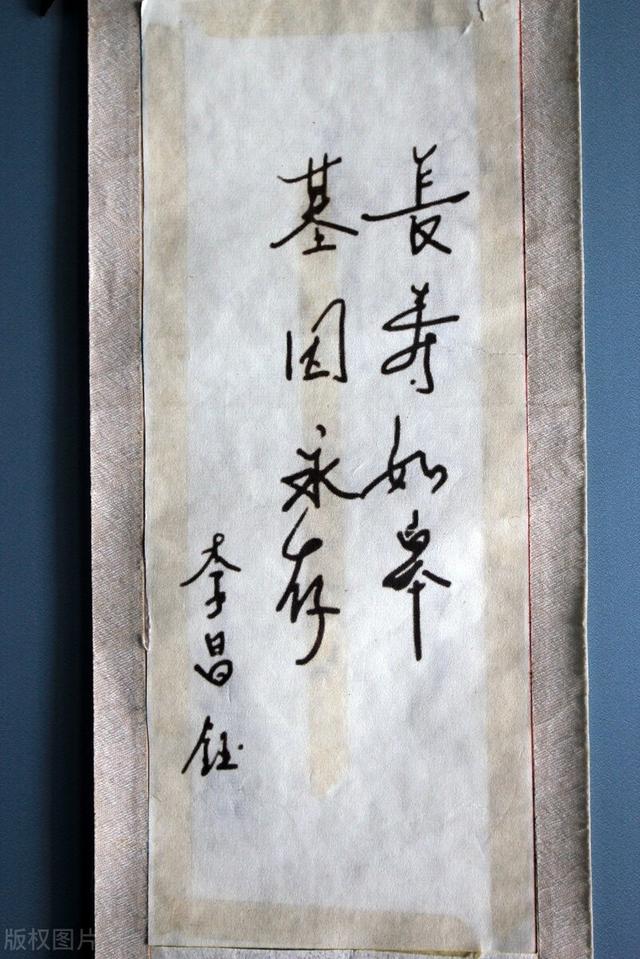 長寿如皋
基因永存
李昌鈺
版权图片